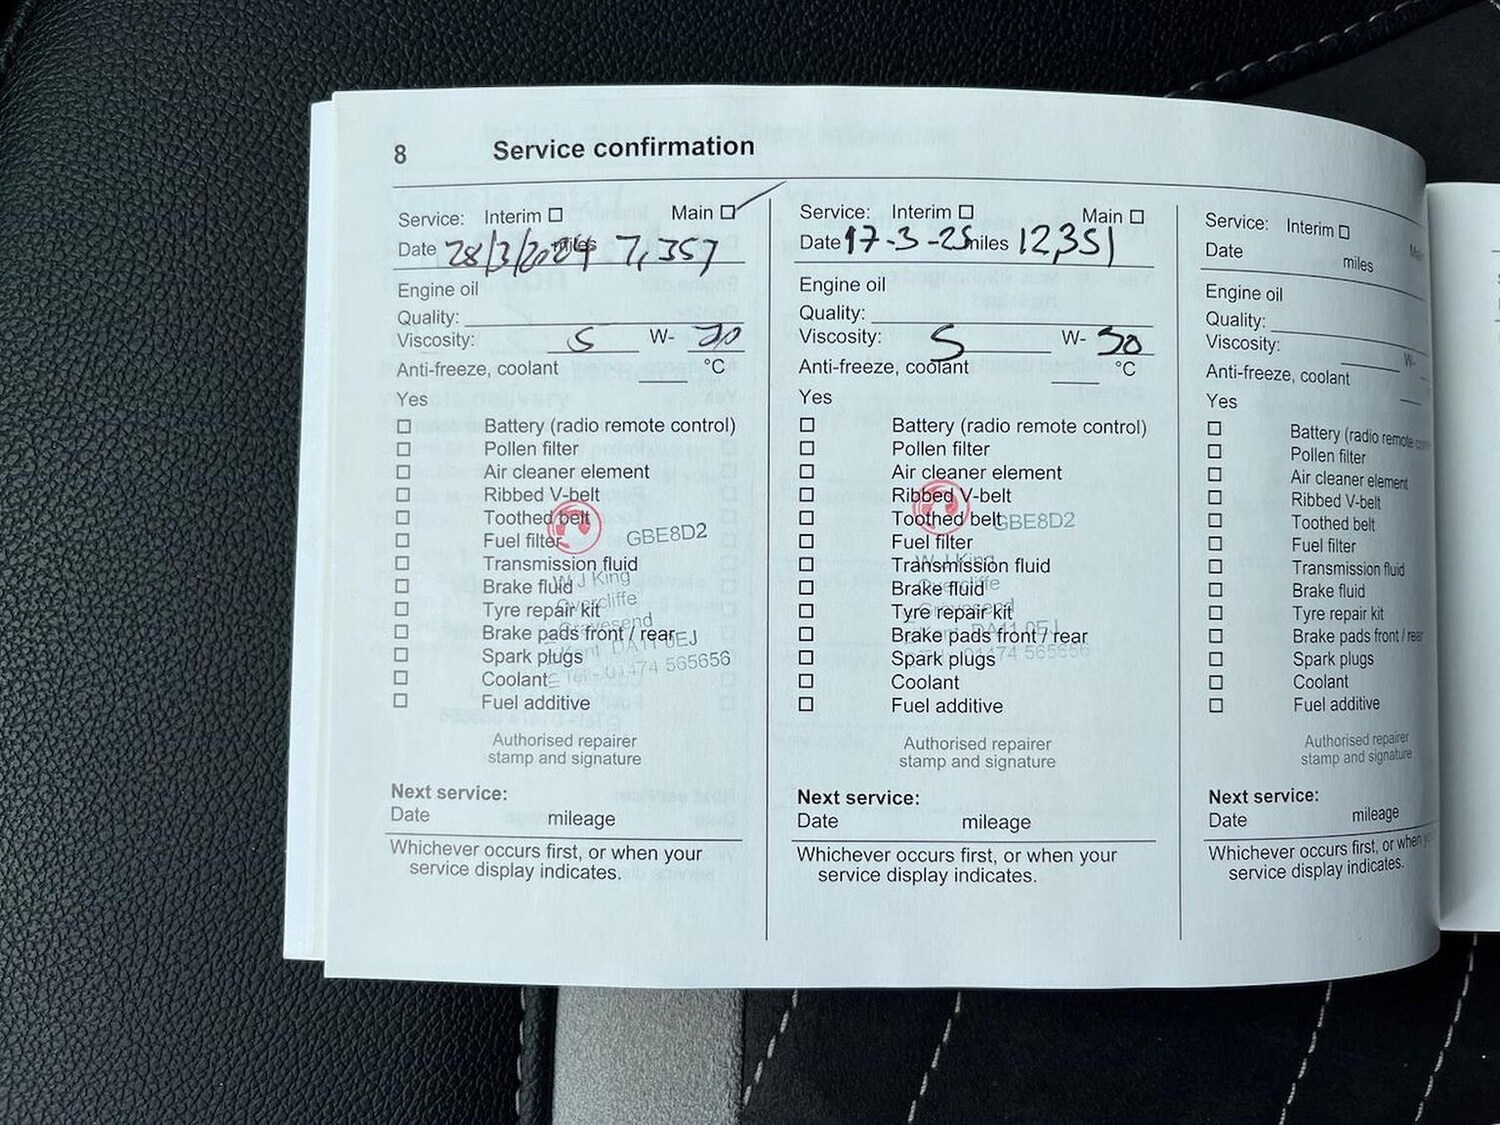 8 Service confirmation
Service: Interim ☐ Main ☐
Date 28/3/2024 miles 7,357
Engine oil
Quality:
Viscosity: 5 W- 
Anti-freeze, coolant °C
Yes
☐ Battery (radio remote control)
☐ Pollen filter
☐ Air cleaner element
☐ Ribbed V-belt
☐ Toothed belt
☐ Fuel filter
GBE8D2
☐ Transmission fluid
☐ Brake fluid
☐ Tyre repair kit
☐ Brake pads front / rear
☐ Spark plugs
☐ Coolant
☐ Fuel additive
W J King
Overcliffe
Gravesend
Kent DA11 0EJ
Tel - 01474 565656
Authorised repairer
stamp and signature
Next service:
Date mileage
Whichever occurs first, or when your
service display indicates.
Service: Interim ☐ Main ☐
Date 17-3-25 miles 12,351
Engine oil
Quality:
Viscosity: 5 W- 30
Anti-freeze, coolant °C
Yes
☐ Battery (radio remote control)
☐ Pollen filter
☐ Air cleaner element
☐ Ribbed V-belt
☐ Toothed belt
☐ Fuel filter
GBE8D2
☐ Transmission fluid
☐ Brake fluid
☐ Tyre repair kit
☐ Brake pads front / rear
☐ Spark plugs
☐ Coolant
☐ Fuel additive
W J King
Overcliffe
Gravesend
Kent DA11 0EJ
Tel - 01474 565656
Authorised repairer
stamp and signature
Next service:
Date mileage
Whichever occurs first, or when your
service display indicates.
Service: Interim ☐
Date miles
Engine oil
Quality:
Viscosity: W-
Anti-freeze, coolant
Yes
☐ Battery (radio remote
☐ Pollen filter
☐ Air cleaner element
☐ Ribbed V-belt
☐ Toothed belt
☐ Fuel filter
☐ Transmission fluid
☐ Brake fluid
☐ Tyre repair kit
☐ Brake pads front / rear
☐ Spark plugs
☐ Coolant
☐ Fuel additive
Authorised repairer
stamp and signature
Next service:
Date mileage
Whichever occurs first, or when
service display indicates.